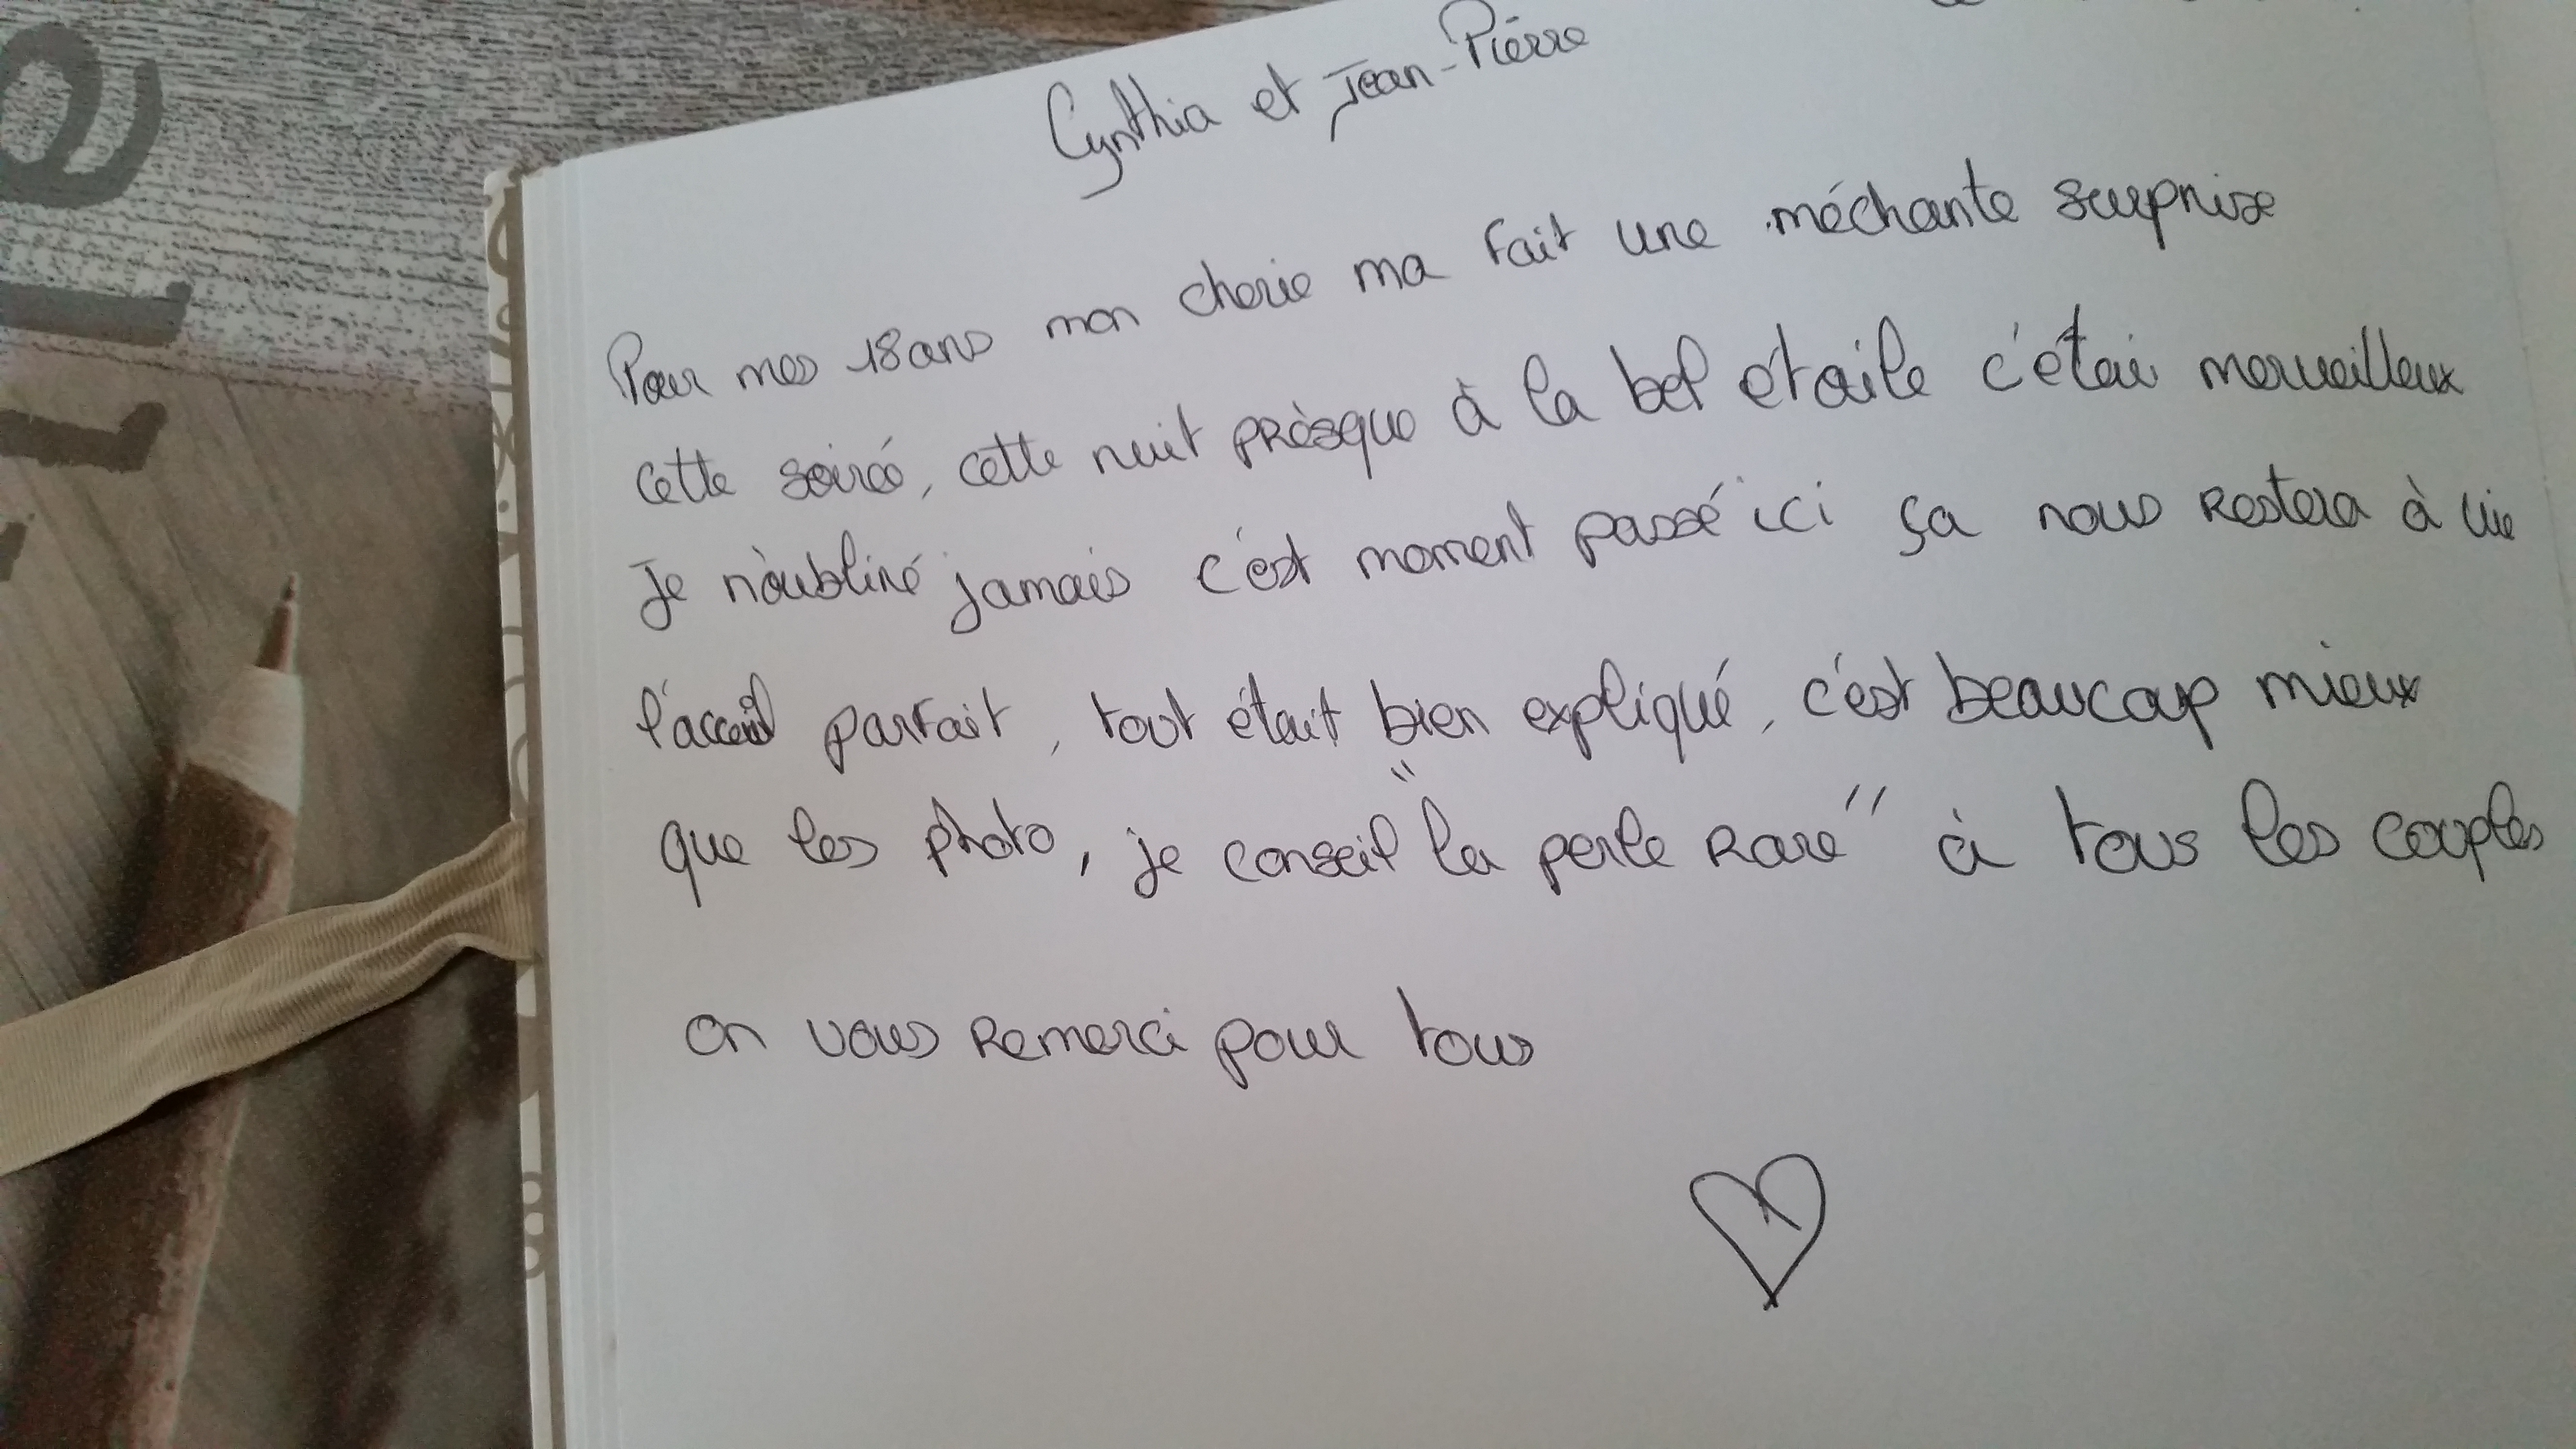 Cynthia et Jean-Pierre
Pour mes 18 ans mon cherie ma fait une méchante surprise
cette soiré, cette nuit prèsque à la bel étoile c'étai merveilleux
Je n'oubliré jamais c'est moment passé ici ça nous restera à vie
l'acceuil parfait, tout était bien expliqué, c'est beaucoup mieux
que les photo, je conseil "la perle rare" à tous les couples
on vous remerci pour tous